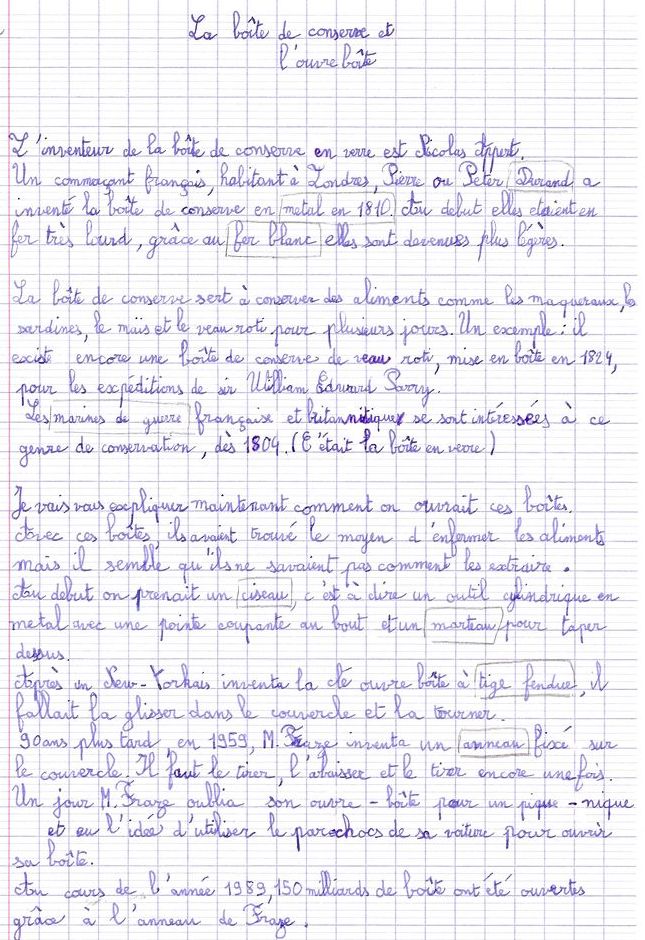 La boîte de conserve et
l'ouvre boîte
L'inventeur de la boîte de conserve en verre est Nicolas Appert.
Un commaçant français, habitant à Londres, Pierre ou Peter Durand a
inventé la boîte de conserve en metal en 1810. Au debut elles etaient en
fer très lourd, grâce au fer blanc elles sont devenues plus légères.
La boîte de conserve sert à conserver des aliments comme les maqueraux, les
sardines, le maïs et le veau roti pour plusieurs jours. Un exemple : il
existe encore une boîte de conserve de veau roti, mise en boîte en 1824,
pour les expéditions de sir William Edward Parry.
Les marines de guerre française et britannique se sont intéressées à ce
genre de conservation, dès 1804. (C'était la boîte en verre)
Je vais vous expliquer maintenant comment on ouvrait ces boîtes.
Avec ces boîtes, ils avaient trouvé le moyen d'enfermer les aliments
mais il semble qu'ils ne savaient pas comment les extraire.
Au debut on prenait un ciseau, c'est à dire un outil cylindrique en
metal avec une pointe coupante au bout et un marteau pour taper
dessus.
Après un New-Yorkais inventa la clé ouvre boîte à tige fendue, il
fallait la glisser dans le couvercle et la tourner.
90 ans plus tard, en 1959, M. Fraze inventa un anneau fixé sur
le couvercle. Il faut le tirer, l'abaisser et le tirer encore une fois.
Un jour M. Fraze oublia son ouvre-boîte pour un pique-nique
et eu l'idée d'utiliser le parechocs de sa voiture pour ouvrir
sa boîte.
Au cours de l'année 1989, 150 milliards de boîte ont été ouvertes
grâce à l'anneau de Fraze.